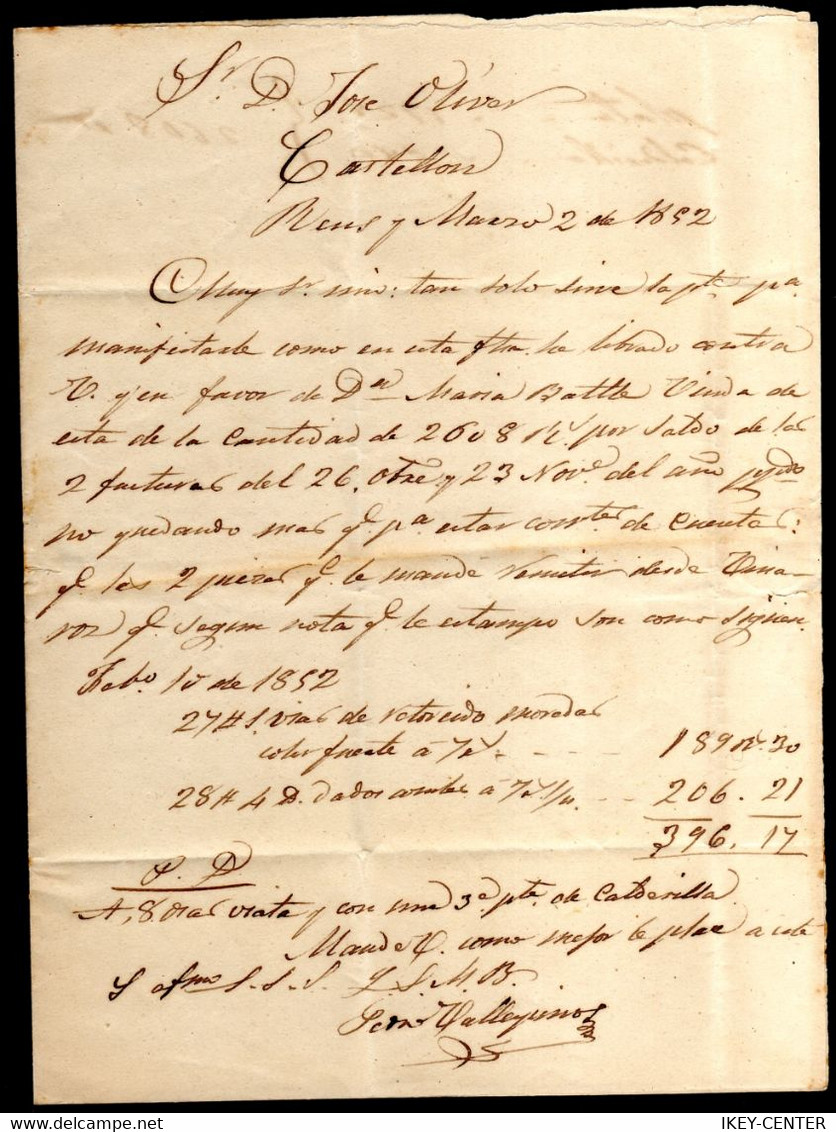 Sr. D. Jose Oliver
Castellon
Reus y Marzo 2 de 1852
Muy Sr. mio: tan solo sirve la pte. pa.
manifestarle como en esta fha. he librado contra
V. y en favor de Da. Maria Batlle Viuda de
esta de la cantidad de 2608 Rs. por saldo de las
2 facturas del 26. Obre. y 23 Nove. del año ppdo
no quedando mas q. pa. estar corrtes. de cuentas:
q. las 2 piezas q. le mande remitir desde Vina-
roz q. segun nota q. le estampo son como siguen.
Febo. 15 de 1852
27 # S. vias de retorcido moradas
color fuerte á 7 rs. - - - - 189 rs. 30
28 # 4 D. dados á 7 rs. - - 206. 21
396. 17
P. D
A, 8 dias vista y con una 3a. pte. de Calderilla.
Mande V. como mejor le plac a este
S afmo S. S. S. Q. S. M. B.
Pedro Vallespinos
IKEY-CENTER